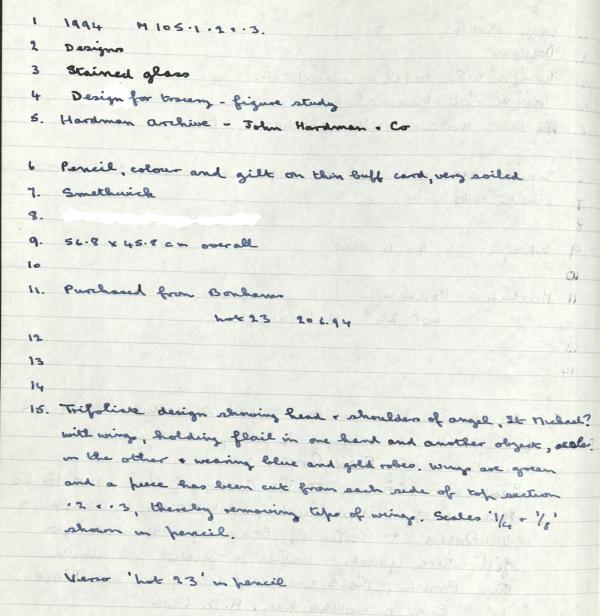 1 1994 M 105.1.2 & .3.
2 Designs
3 Stained glass
4 Design for tracery - figure study
5. Hardman Archive - John Hardman & Co
6 Pencil, colour and gilt on thin buff card, very soiled
7. Smethwick
8.
9. 56.8 x 45.8 cm overall
10
11. Purchased from Bonhams
Lot 23 20.6.94
12
13
14
15. Trifoliate design showing head & shoulders of angel, St Michael?
with wings, holding flail in one hand and another object, scales?
in the other & wearing blue and gold robes. Wings are green
and a piece has been cut from each side of top section
.2 & .3, thereby removing tips of wings. Scales '1/4 & 1/8'
shown in pencil.
Verso 'Lot 23' in pencil